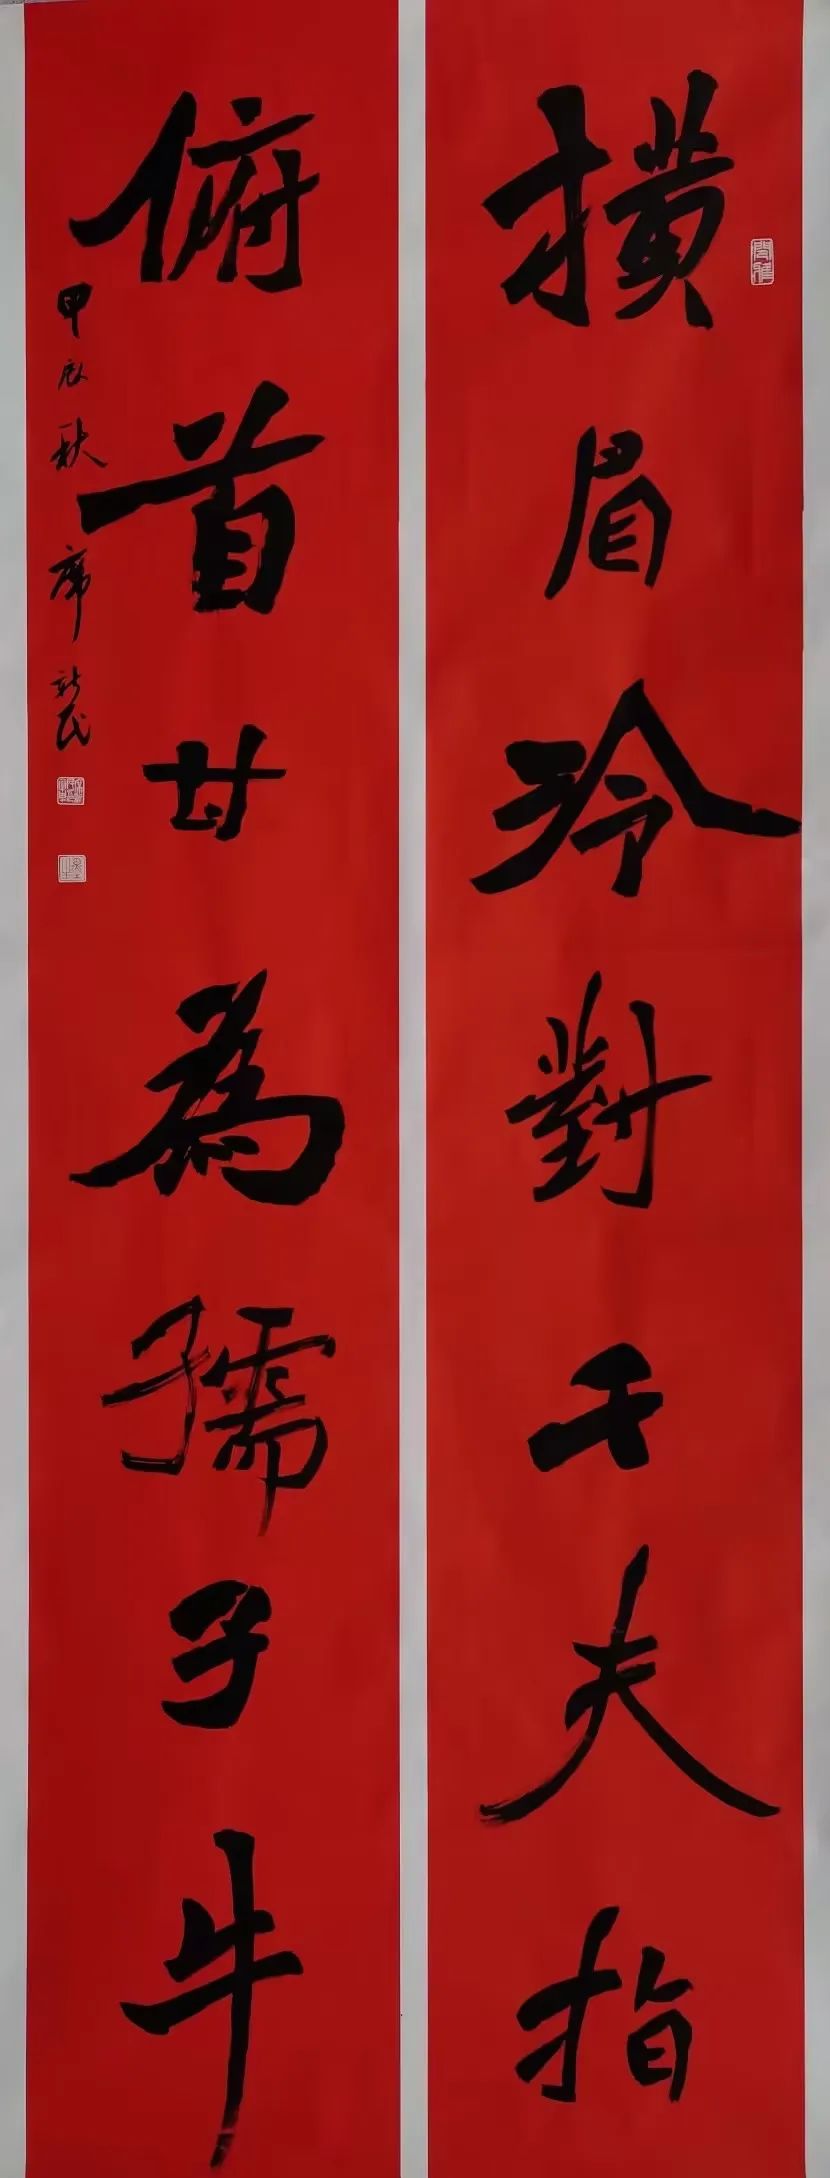 横眉冷對千夫指
俯首甘為孺子牛
甲辰秋 席新民